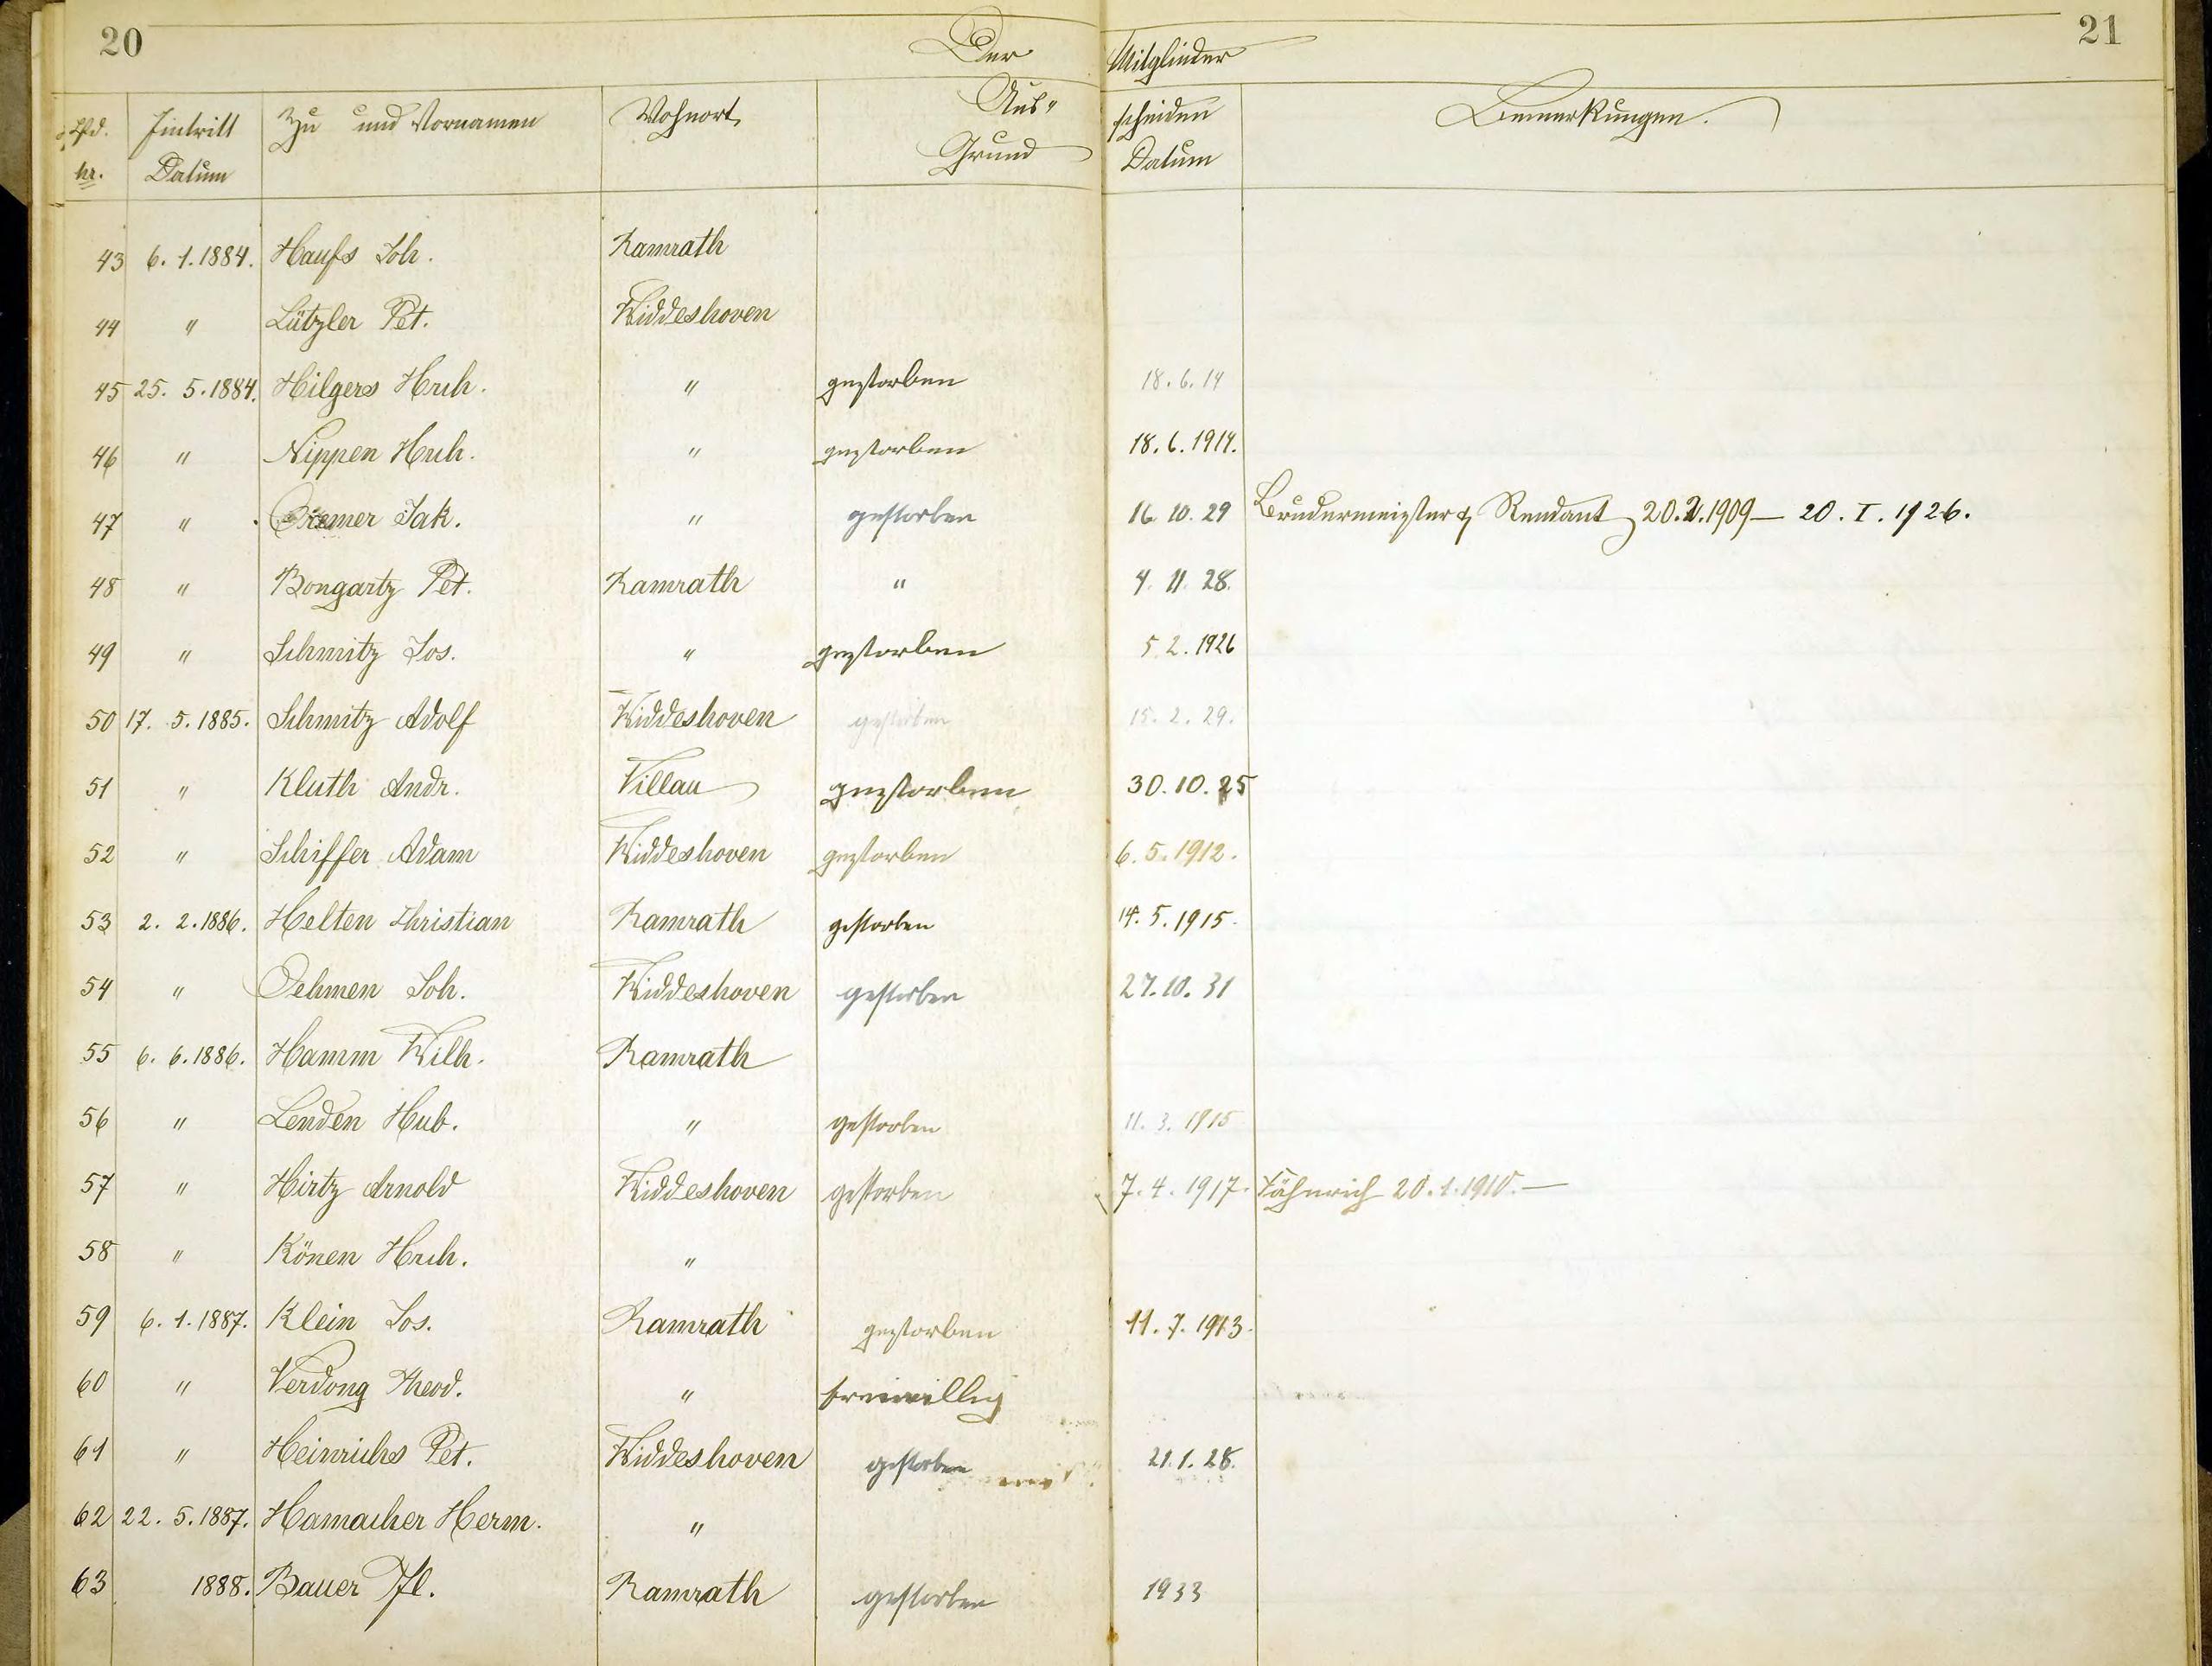 20 Der Mitglieder 21
Lfd. Eintritt Zu und Vornamen Wohnort Aus= scheiden Bemerkungen.
Nr. Datum Grund Datum
43 6. 1. 1884. Haufs Joh. Ramrath
44 " Lützler Pet. Widdeshoven
45 25. 5. 1884. Hilgers Hrch. " gestorben 18. 6. 14
46 " Nippen Hrch. " gestorben 18. 6. 1914.
47 " Cremer Jak. " gestorben 16. 10. 29 Brudermeister & Rendant 20. 2. 1909 — 20. I. 1926.
48 " Bongartz Pet. Ramrath " 4. 11. 28.
49 " Schmitz Jos. " gestorben 5. 2. 1926
50 17. 5. 1885. Schmitz Adolf Widdeshoven gestorben 15. 2. 29.
51 " Kluth Andr. Villau gestorben 30. 10. 25
52 " Schiffer Adam Widdeshoven gestorben 6. 5. 1912.
53 2. 2. 1886. Helten Christian Ramrath gestorben 14. 5. 1915.
54 " Oehmen Joh. Widdeshoven gestorben 27. 10. 31
55 6. 6. 1886. Hamm Wilh. Ramrath
56 " Lenden Hub. " gestorben 11. 3. 1915
57 " Hirtz Arnold Widdeshoven gestorben 7. 4. 1917. Fähnrich 20. 1. 1910. —
58 " Könen Hrch. "
59 6. 1. 1887. Klein Jos. Ramrath gestorben 11. 7. 1913.
60 " Verdong Theod. " freiwillig
61 " Heinrichs Pet. Widdeshoven gestorben 21. 1. 28.
62 22. 5. 1887. Hamacher Herm. "
63 1888. Bauer Jl. Ramrath gestorben 1933